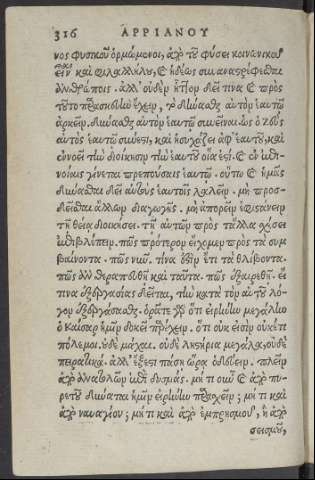 316 ΑΡΡΙΑΝΟΥ
νος φυσικοῦ ὁρμώμενοι, ἀπὸ τοῦ φύσει κοινωνικοὺς
εἶναι καὶ φιλαλλήλους, καὶ ἡδέως συναναστρέφεσθαι
ἀνθρώποις. ἀλλ' οὐδὲν ἧττον δεῖ τινα καὶ πρὸς
τοῦτο παρασκευὴν ἔχειν, τὸ δύνασθαι αὐτὸν ἑαυτῷ
ἀρκεῖν. δύνασθαι αὐτὸν ἑαυτῷ συνεῖναι. ὡς ὁ ζεὺς
αὐτὸς ἑαυτῷ σύνεστι, καὶ ἡσυχάζει ἐφ' ἑαυτοῦ, καὶ
ἐννοεῖ τὴν διοίκησιν τὴν ἑαυτοῦ οἵα ἐστί. καὶ ἐν ἐπι-
νοίαις γίνεται πρεπούσαις ἑαυτῷ. οὕτω καὶ ἡμᾶς
δύνασθαι δεῖ αὐτοὺς ἑαυτοῖς λαλεῖν. μὴ προσ-
δεῖσθαι ἄλλων διαγωγῆς. μὴ ἀπορεῖν ἐφιστάνειν
τῇ θείᾳ διοικήσει. τῇ αὐτῶν πρὸς τἆλλα σχέσει
ἐπιβλέπειν. πῶς πρότερον εἴχομεν πρὸς τὰ συμ-
βαίνοντα. πῶς νῦν. τίνα ἐστὶν ἔτι τὰ θλίβοντα.
πῶς ἂν θεραπευθῇ καὶ ταῦτα. πῶς ἐξαιρεθῇ. εἴ
τινα ἐξεργασίας δεῖται, τὴν κατὰ τὸν αὐτοῦ λό-
γον ἐξεργάσασθαι. ὁρᾶτε γὰρ ὅτι εἰρήνην μεγάλην
ὁ Καῖσαρ ἡμῖν δοκεῖ παρέχειν. ὅτι οὐκ εἰσὶν οὐκέτι
πόλεμοι. οὐδὲ μάχαι. οὐδὲ λῃστήρια μεγάλα, οὐδὲ
πειρατικά. ἀλλ' ἔξεστι πάσῃ ὥρᾳ ὁδεύειν. πλεῖν
ἀπὸ ἀνατολῶν ἐπὶ δυσμάς. μή τι οὖν καὶ ἀπὸ πυ-
ρετοῦ δύναται ἡμῖν εἰρήνην παρασχεῖν; μή τι καὶ
ἀπὸ ναυαγίου; μή τι καὶ ἀπὸ ἐμπρησμοῦ, ἢ ἀπὸ
σεισμοῦ,